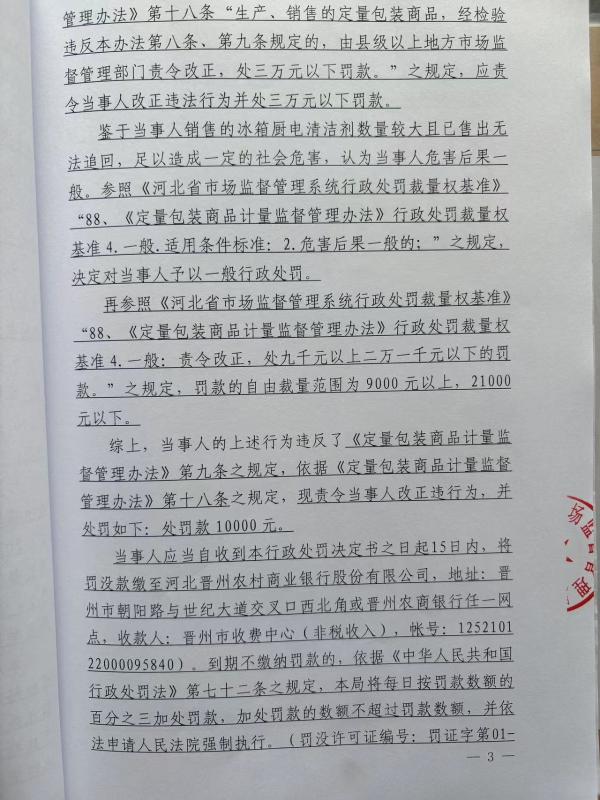 管理办法》第十八条“生产、销售的定量包装商品，经检验
违反本办法第八条、第九条规定的，由县级以上地方市场监
督管理部门责令改正，处三万元以下罚款。”之规定，应责
令当事人改正违法行为并处三万元以下罚款。
鉴于当事人销售的冰箱厨电清洁剂数量较大且已售出无
法追回，足以造成一定的社会危害，认为当事人危害后果一
般。参照《河北省市场监督管理系统行政处罚裁量权基准》
“88、《定量包装商品计量监督管理办法》行政处罚裁量权
基准4.一般.适用条件标准：2.危害后果一般的；”之规定，
决定对当事人予以一般行政处罚。
再参照《河北省市场监督管理系统行政处罚裁量权基准》
“88、《定量包装商品计量监督管理办法》行政处罚裁量权
基准4.一般：责令改正，处九千元以上二万一千元以下的罚
款。”之规定，罚款的自由裁量范围为9000元以上，21000
元以下。
综上，当事人的上述行为违反了《定量包装商品计量监
督管理办法》第九条之规定，依据《定量包装商品计量监督
管理办法》第十八条之规定，现责令当事人改正违行为，并
处罚如下：处罚款10000元。
当事人应当自收到本行政处罚决定书之日起15日内，将
罚没款缴至河北晋州农村商业银行股份有限公司，地址：晋
州市朝阳路与世纪大道交叉口西北角或晋州农商银行任一网
点，收款人：晋州市收费中心（非税收入），帐号：1252101
22000095840）。到期不缴纳罚款的，依据《中华人民共和国
行政处罚法》第七十二条之规定，本局将每日按罚款数额的
百分之三加处罚款，加处罚款的数额不超过罚款数额，并依
法申请人民法院强制执行。（罚没许可证编号：罚证字第01-
— 3 —
场监督管理